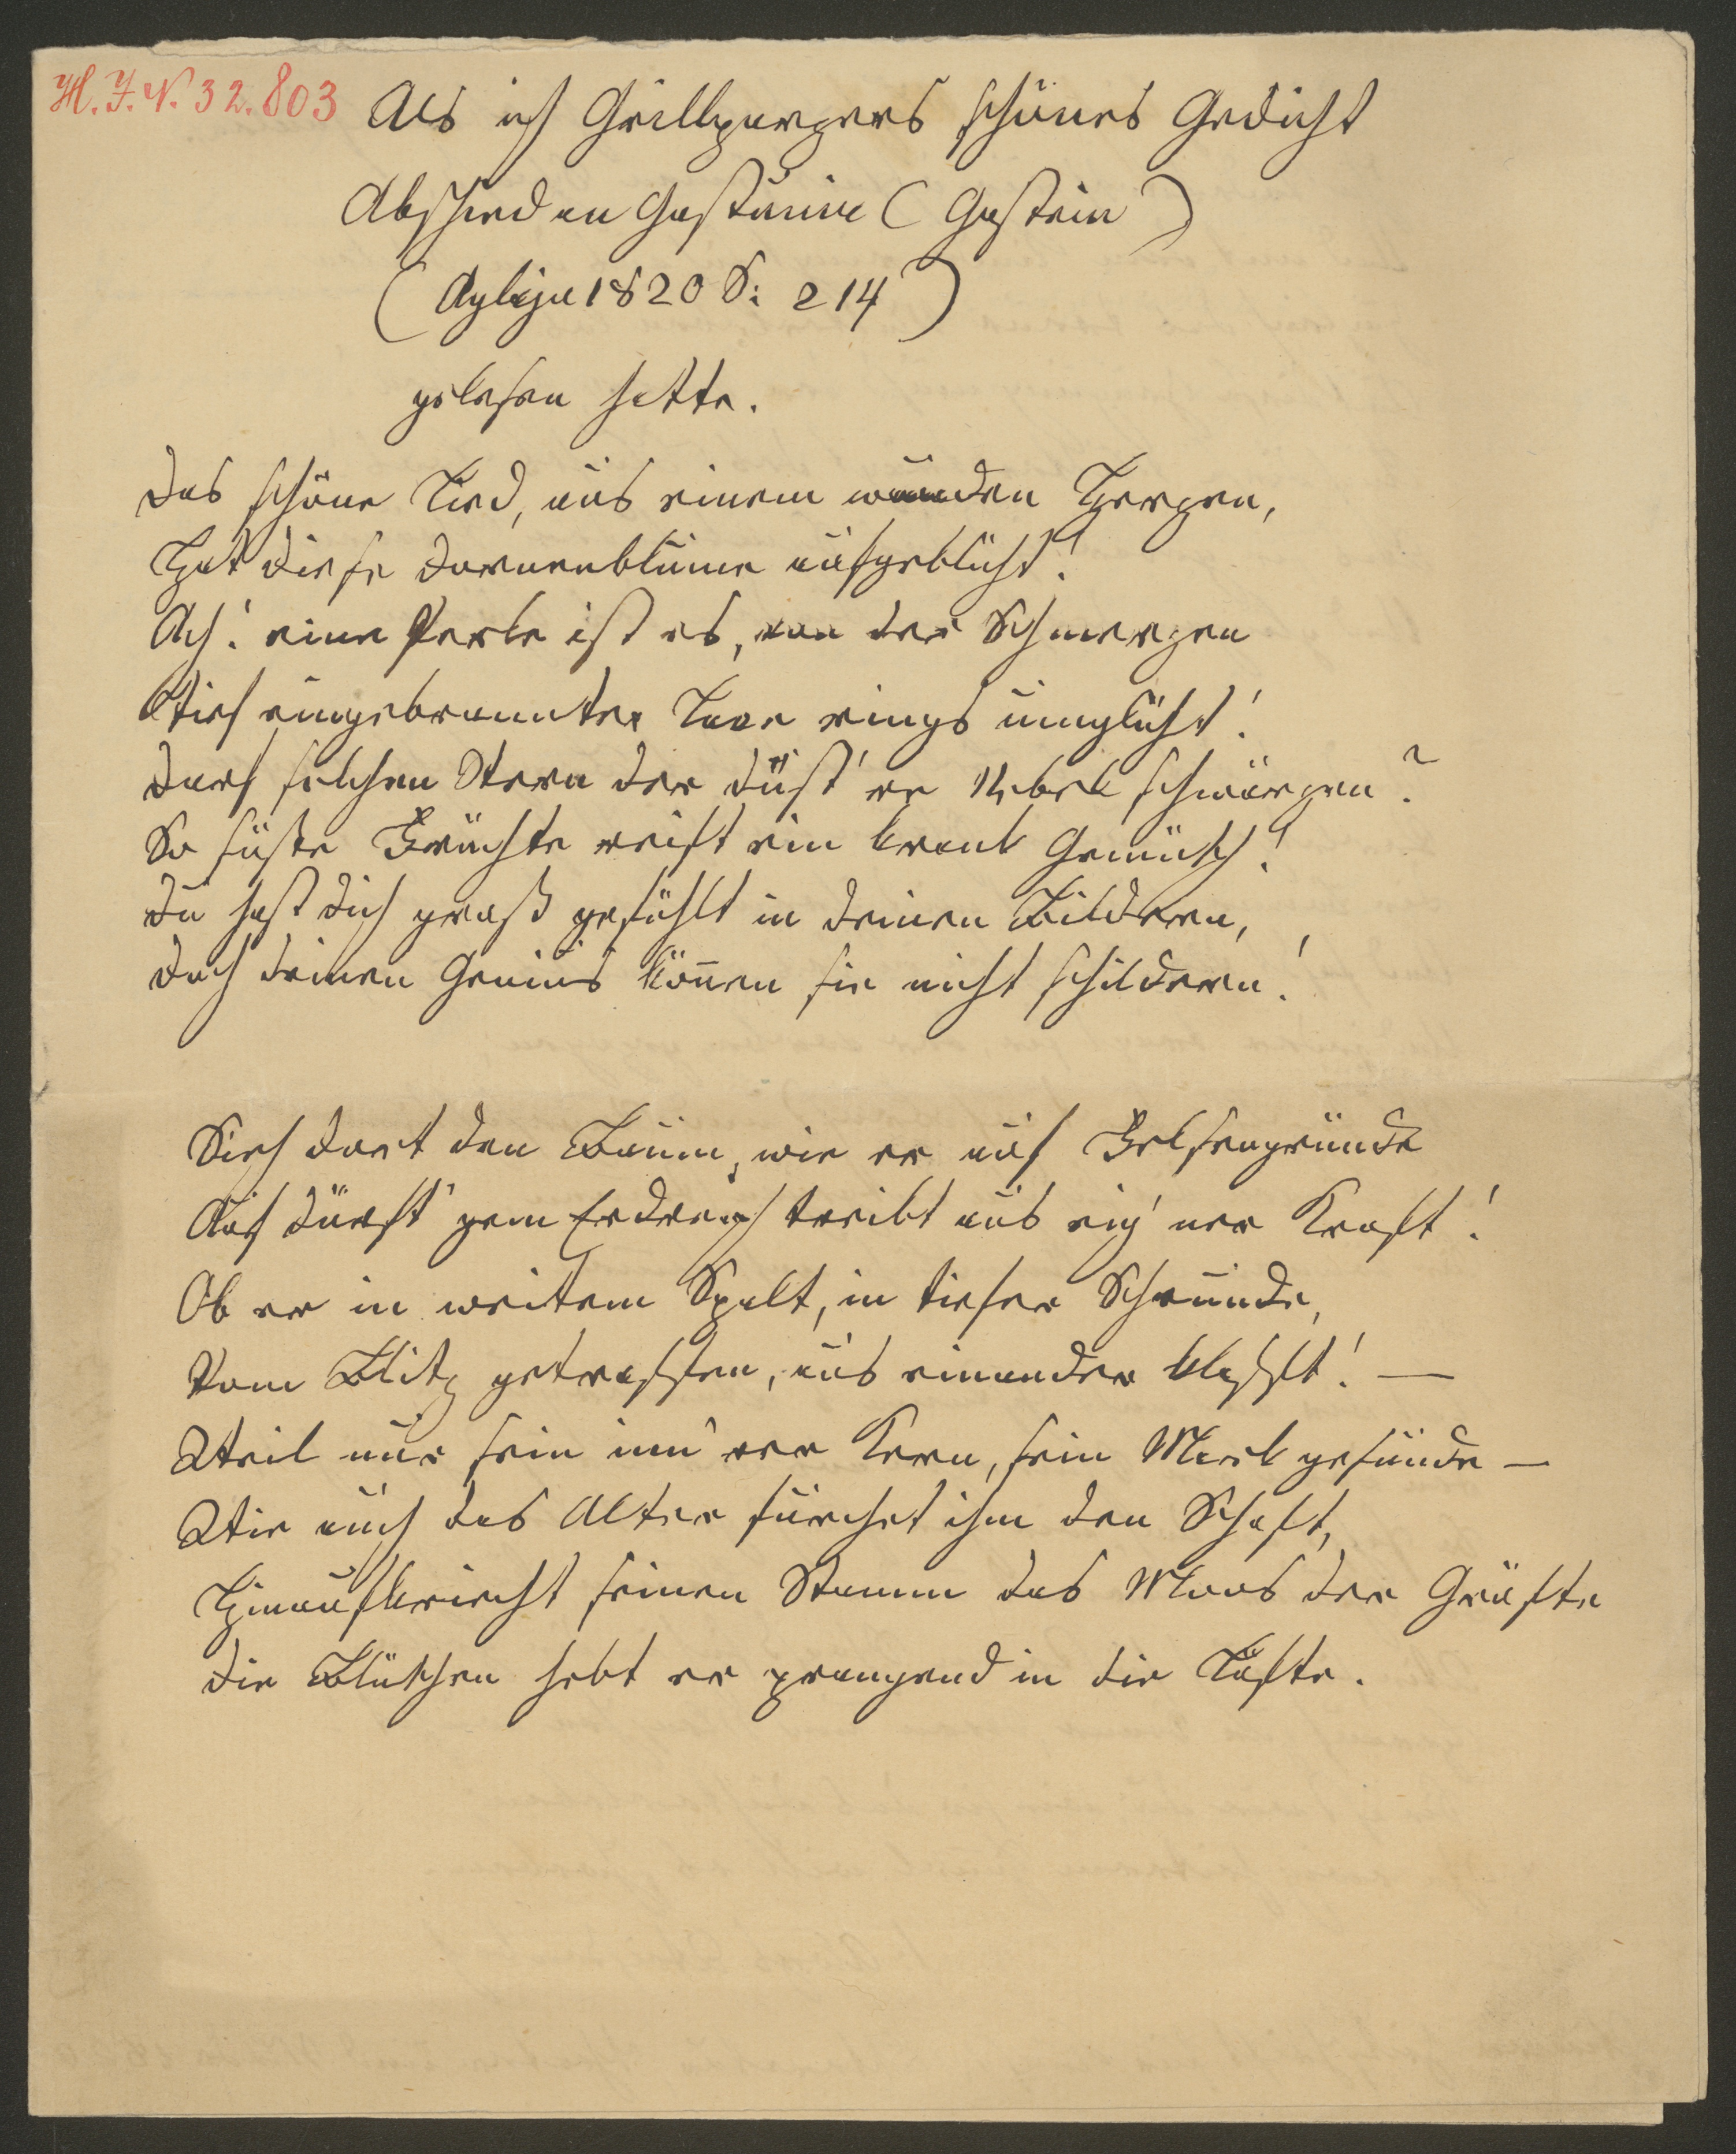 H. I. N. 32.803
Als ich Grillparzers schönes Gedicht
Abschied an Gastunie (Gastein)
(Aglaja 1820 S: 214)
gelesen hatte.
Das schöne Lied, aus einem wunden Herzen,
Hat diese Dornenblume aufgeblüht!
Ach! eine Perle ist es, von der Schmerzen
Tief eingebrannter rings umglüht!
Darf solchen Stern der düst're Nebel schwärzen?
So süße Früchte reift ein krank Gemüth!
Du hast dich groß gefühlt in deinen Bildern,
Doch deinen Genius kön̄en sie nicht schildern!
Sieh dort den Baum, wie er auf Felsengrunde
Auf dürft'gem Erdreich treibt aus eig'ner Kraft!
Ob er in weitem Spalt, in tiefer Schrunde,
Vom Blitz getroffen, aus einander klafft! —
Weil nur sein inn'rer Kern, sein Mark gesunde —
Wie auch das Alter furchet ihm den Schaft,
Hinaufkriecht seinen Stamm das Moos der Grüfte
Die Blüthen hebt er prangend in die Lüfte.